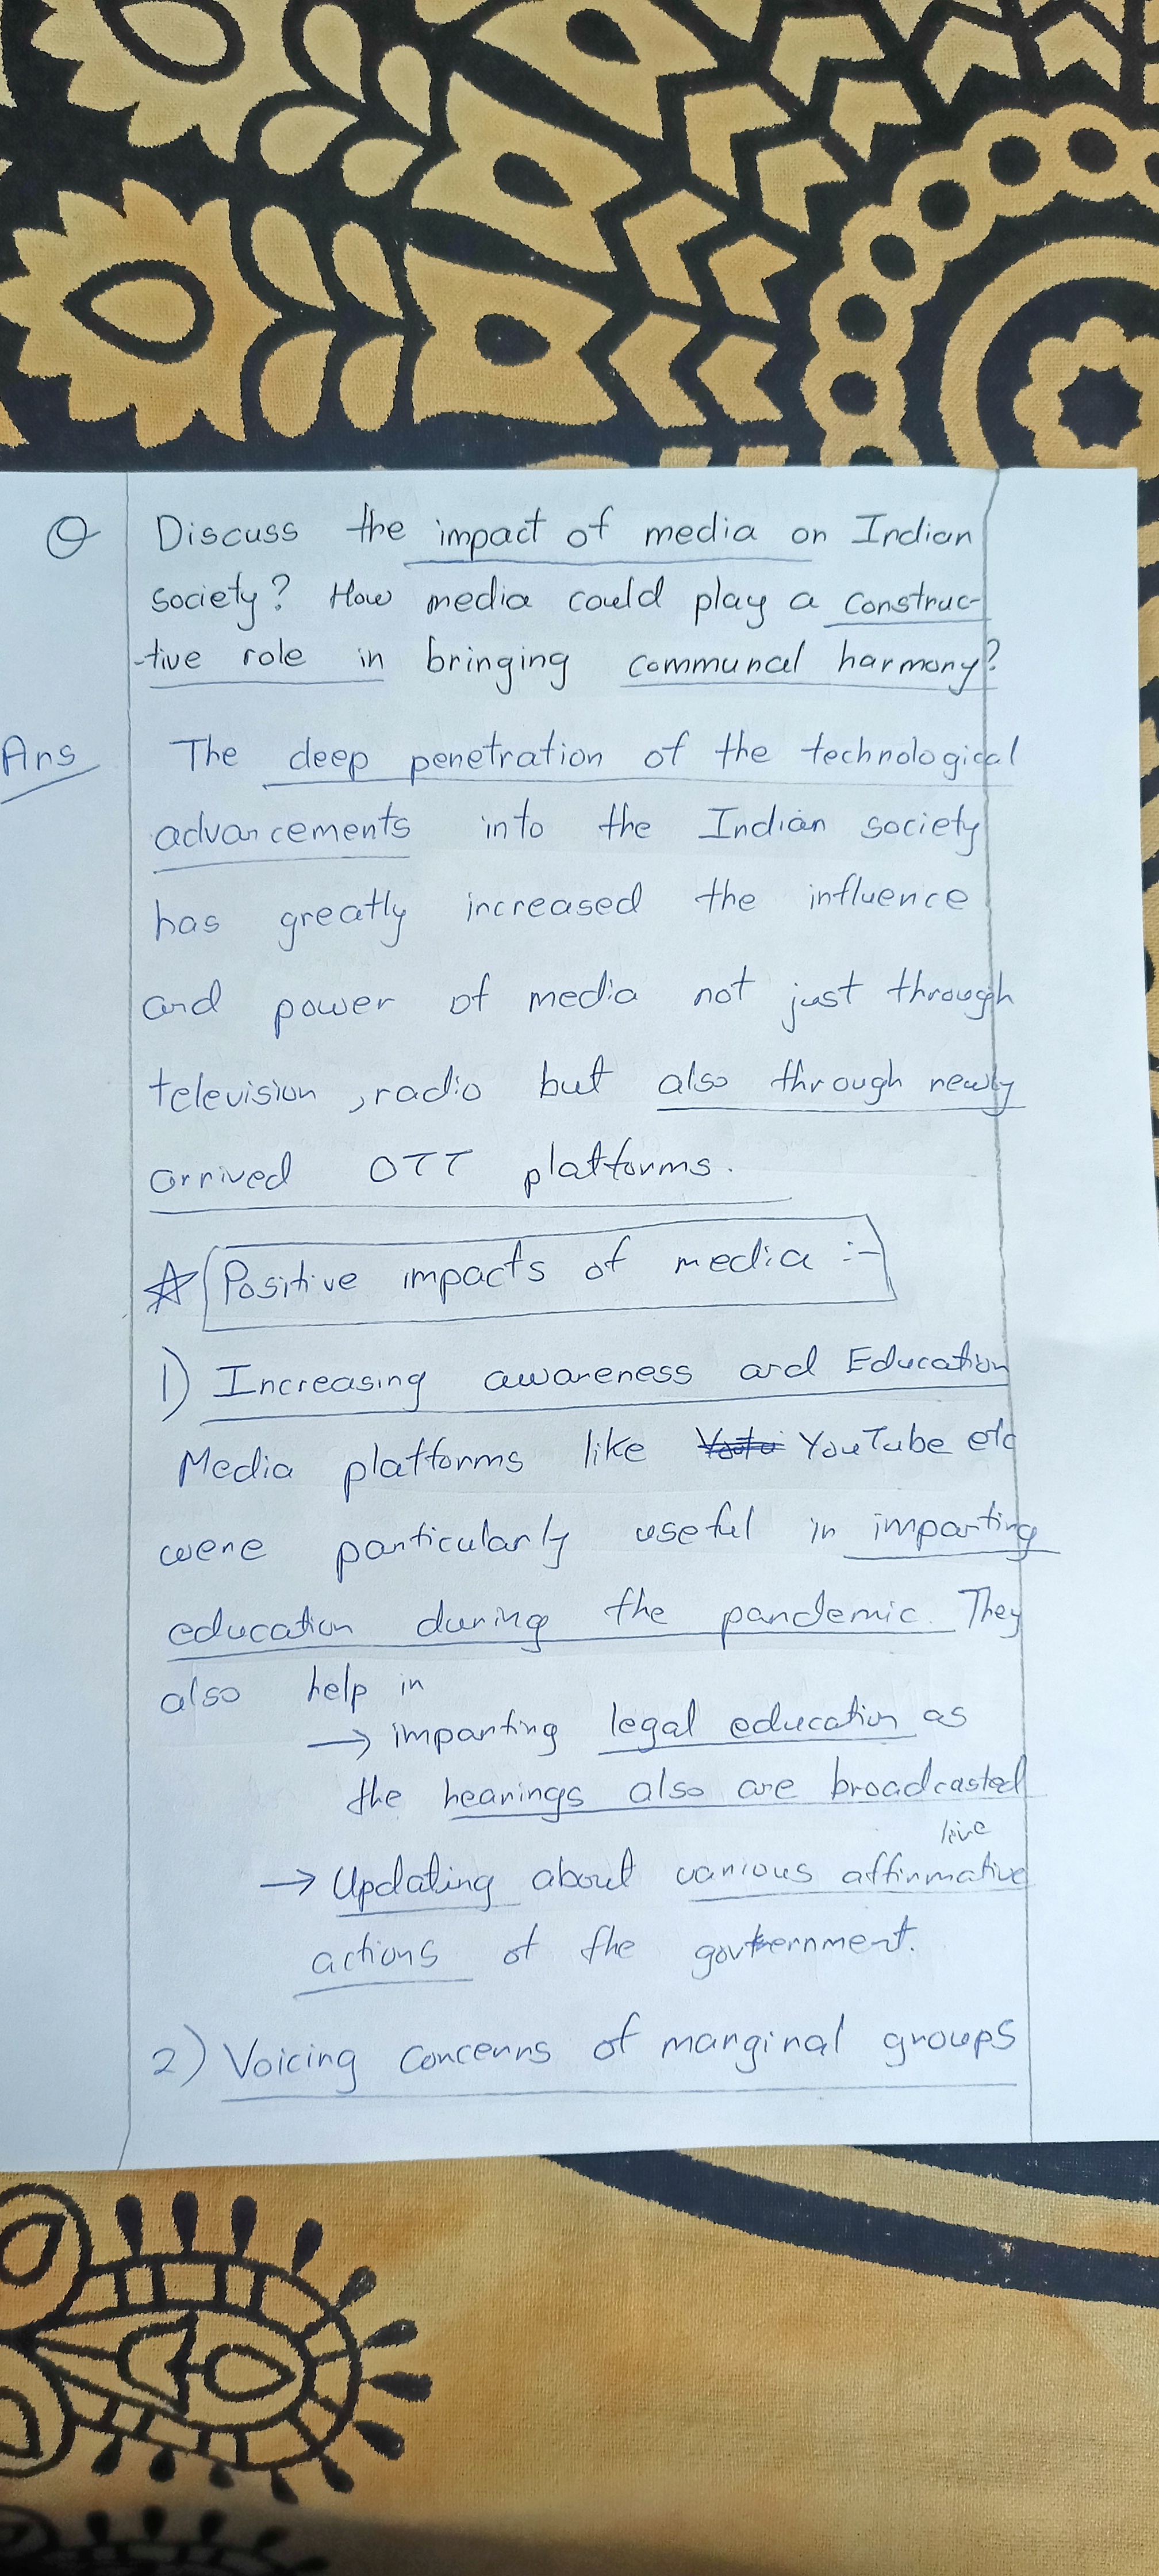 Q Discuss the impact of media on Indian
society? How media could play a construc-
-tive role in bringing communal harmony?
Ans The deep penetration of the technological
advancements into the Indian society
has greatly increased the influence
and power of media not just through
television, radio but also through newly
arrived OTT platforms.
☆ Positive impacts of media :-
1) Increasing awareness and Education
Media platforms like YouTube etc
were particularly useful in imparting
education during the pandemic. They
also help in
→ imparting legal education as
the hearings also are broadcasted
live
→ Updating about various affirmative
actions of the government.
2) Voicing concerns of marginal groups